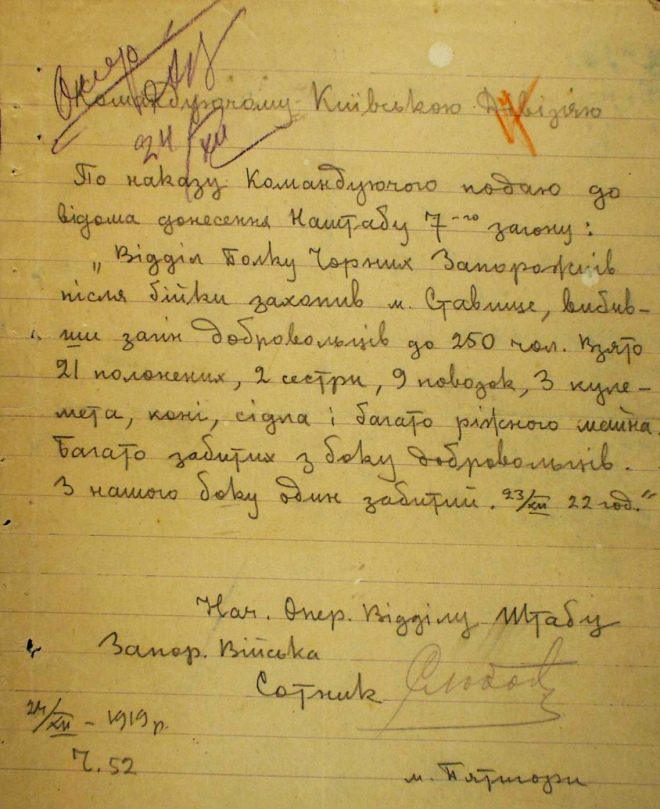 24/XII
Командуючому Київською Дивізією
По наказу Командуючого подаю до
відома донесення Наштабу 7-го загону:
„Відділ Полку Чорних Запорожців
після бійки захопив м. Ставище, вибив-
ши загін добровольців до 250 чол. Взято
21 полонених, 2 сестри, 9 повозок, 3 куле-
мета, коні, сідла і багато ріжного майна.
Багато забитих з боку добровольців.
З нашого боку один забитий. 23/XII 22 год."
Нач. Опер. Відділу Штабу
Запор. Війська
Сотник
24/XII – 1919 р.
Ч. 52
м. Пятигори